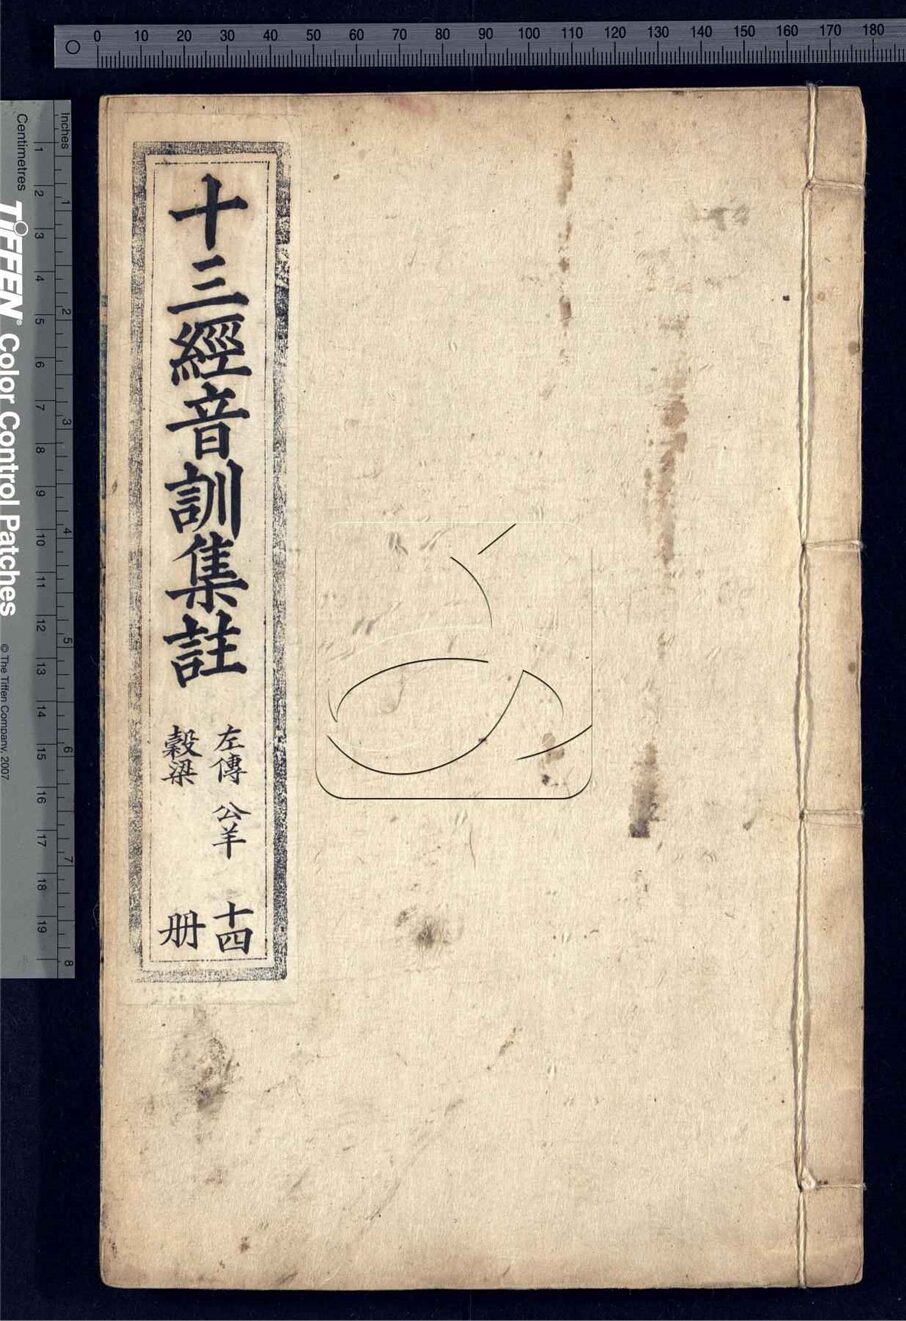 0 10 20 30 40 50 60 70 80 90 100 110 120 130 140 150 160 170 180
Inches
1 2 3 4 5 6 7 8
Centimetres
1 2 3 4 5 6 7 8 9 10 11 12 13 14 15 16 17 18 19
TIFFEN® Color Control Patches
© The Tiffen Company, 2007
十三經音訓集註
左傳 公羊
穀梁
十四
册